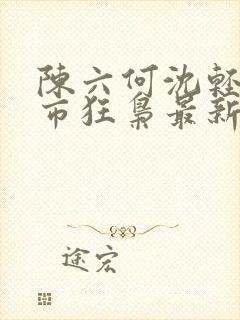 陳六何沈輕
市狂梟最新
途宏